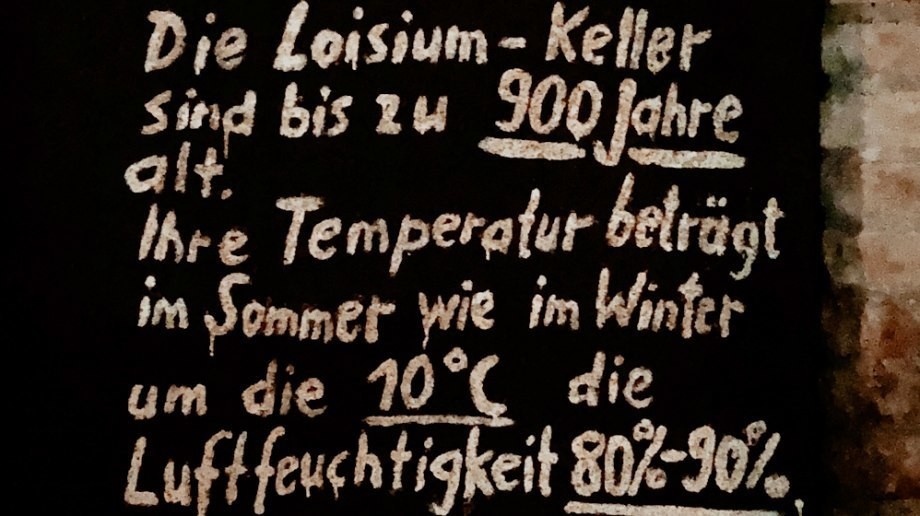 Die Loisium - Keller
sind bis zu 900 Jahre
alt.
Ihre Temperatur beträgt
im Sommer wie im Winter
um die 10°C die
Luftfeuchtigkeit 80%-90%.